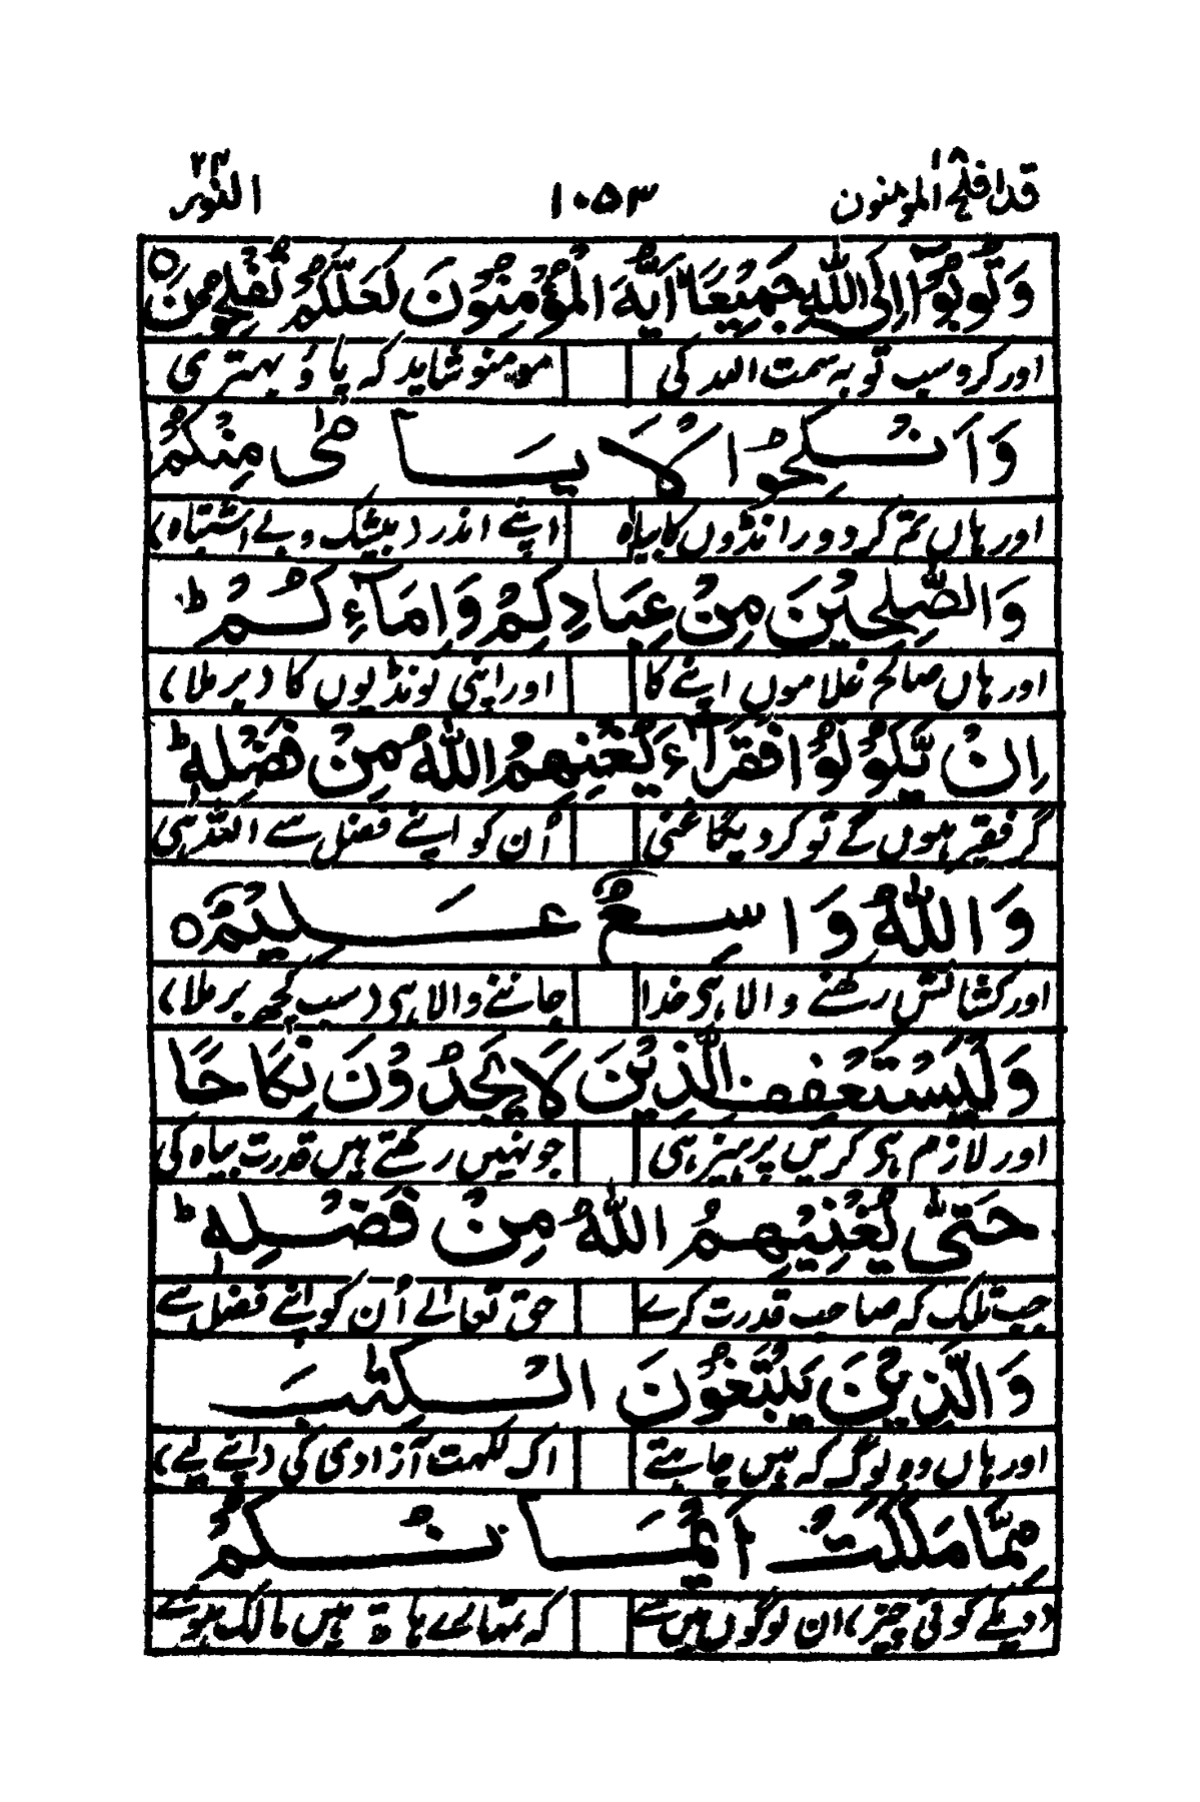 قد افلح المؤمنون ۱۸ ۱۰۵۳ النور ۲۴
وَتُوْبُوْٓا اِلَى اللّٰهِ جَمِيْعًا اَيُّهَ الْمُؤْمِنُوْنَ لَعَلَّكُمْ تُفْلِحُوْنَ ○
اور کرو سب توبہ سمت اللہ کی مومنو شاید کہ پاؤ بہتری
وَاَنْكِحُوا الْاَيَامٰى مِنْكُمْ
اور ہاں تم کر دو رانڈوں کا بیاہ اپنے اندر (بیٹک و بے اشتباہ)
وَالصّٰلِحِيْنَ مِنْ عِبَادِكُمْ وَاِمَآءِكُمْ ؕ
اور ہاں صالح غلاموں اپنے کا اور اپنی لونڈیوں کا (برملا)
اِنْ يَّكُوْنُوْا فُقَرَآءَ يُغْنِهِمُ اللّٰهُ مِنْ فَضْلِهٖ ؕ
گر فقیر ہوں گے تو کر دیگا غنی اُن کو اپنے فضل سے اللہ ہی
وَاللّٰهُ وَاسِعٌ عَلِيْمٌ ○
اور کشائش رکھنے والا ہی خدا جاننے والا ہی (سب کچھ برملا)
وَلْيَسْتَعْفِفِ الَّذِيْنَ لَا يَجِدُوْنَ نِكَاحًا
اور لازم ہی کریں پرہیز ہی جو نہیں رکھتے ہیں قدرت بیاہ کی
حَتّٰى يُغْنِيَهُمُ اللّٰهُ مِنْ فَضْلِهٖ ؕ
جب تلک کہ صاحب قدرت کرے حق تعالے اُن کو اپنے فضل سے
وَالَّذِيْنَ يَبْتَغُوْنَ الْكِتٰبَ
اور ہاں وہ لوگ کہ ہیں چاہتے اک لکھت آزادی کی (اپنے لیے)
مِمَّا مَلَكَتْ اَيْمَانُكُمْ
(دیکے کوئی چیز) ان لوگوں میں سے کہ تمہارے ہاتھ ہیں مالک ہوئے